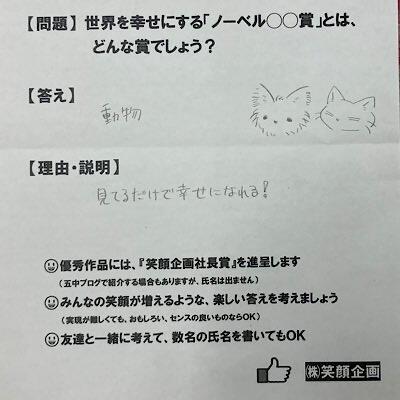 【問題】世界を幸せにする「ノーベル○○賞」とは、
どんな賞でしょう？
【答え】
動物
【理由・説明】
見てるだけで幸せになれる!
優秀作品には、『笑顔企画社長賞』を進呈します
（五中ブログで紹介する場合もありますが、氏名は出ません）
みんなの笑顔が増えるような、楽しい答えを考えましょう
（実現が難しくても、おもしろい、センスの良いものならOK）
友達と一緒に考えて、数名の氏名を書いてもOK
㈱笑顔企画